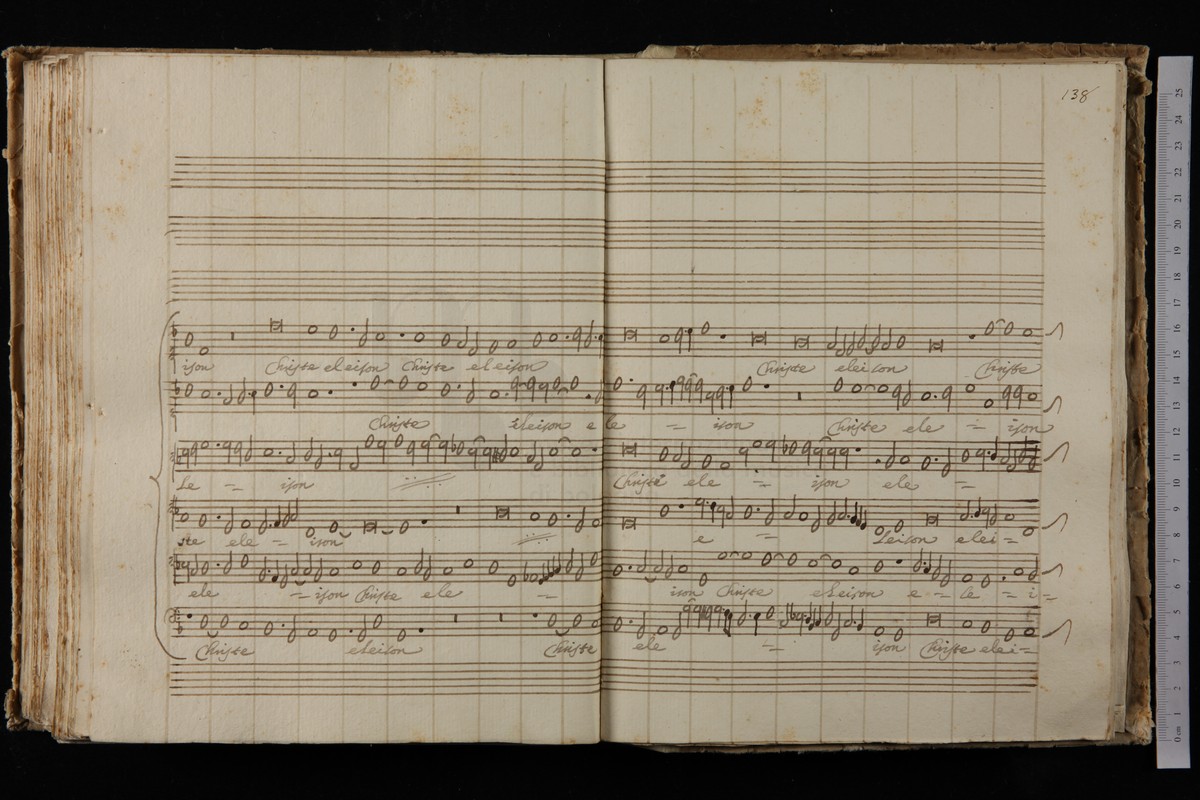 138
ison Christe eleison Christe eleison Christe eleison Christe
Christe eleison e le = ison Christe ele = ison
Le = ison Christe ele = ison ele =
ste ele = ison e = leison elei=
ele = ison Christe ele = ison Christe eleison e = le = i=
Christe eleison Christe ele = ison Christe elei=